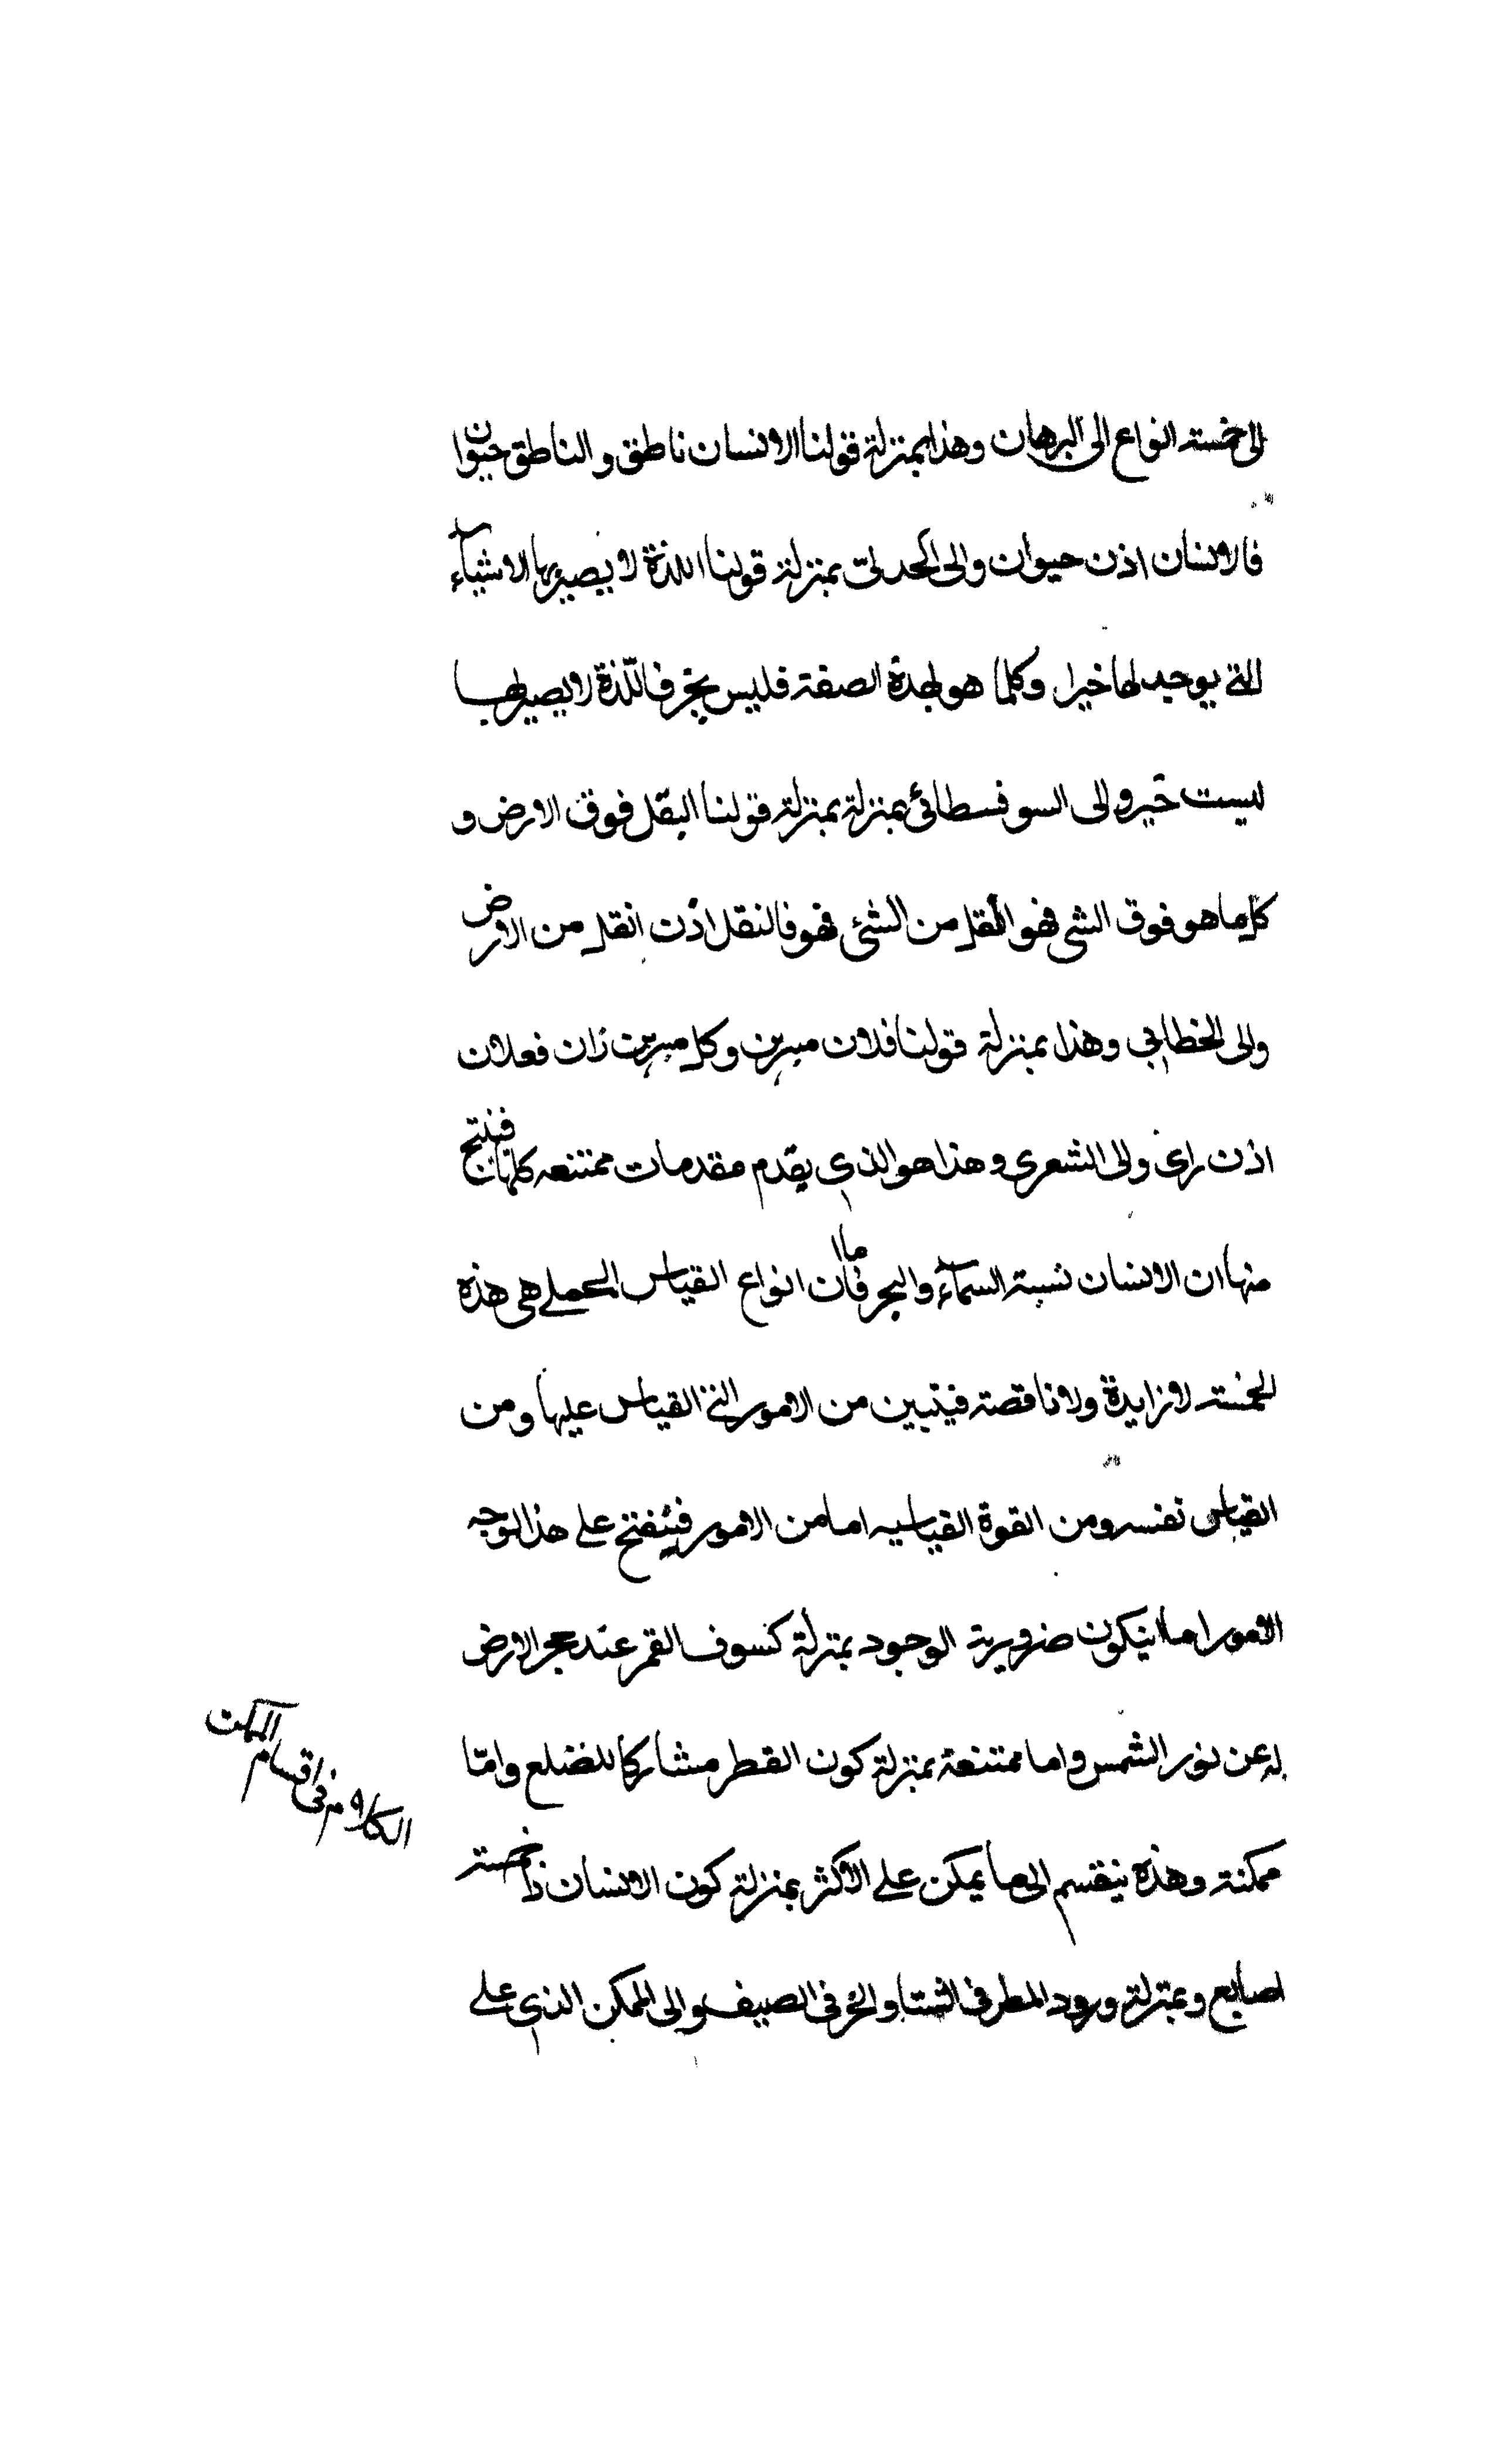 الى خمسته انواع الى البرهان وهذا بمنزلة قولنا الانسان ناطق والناطق حيوان
فالانسان اذن حيوان والى الجدلى بمنزلة قولنا اللذة لا يصير بها الاشياء
التى يوجد لها خيرا وكلما هو بهذة الصفة فليس بخير فاللذة لا يصير لها
ليست خير والى السوفسطائى بمنزلة بمنزلة قولنا البقل فوق الارض و
كل ما هو فوق الشى فهو اثقل من الشئ فهو فالنقل اذن اثقل من الارض
والى الخطابى وهذا بمنزلة قولنا فلان مبرين وكل مبرين زان فعلان
اذن زانى والى الشعرى وهذا هو الذى يقدم مقدمات ممتنعه كلها فينتج
منها ان الانسان نسبة السمآء والبحر فاما ان انواع القياس الحملى هى هذه
الخمسته لا زايدة ولا ناقصته فيتبين من الامور التى القياس عليها ومن
القياس نفسه ومن القوة القياسيه اما من الامور فيتضح على هذا الوجه
الامور اما ان يكون ضروريته الوجود بمنزلة كسوف القمر عند حجر الارض
له عن نور الشمس واما ممتنعة بمنزلة كون القطر مشاركا للضلع وامّا
ممكنة وهذه ينقسم الى ما يمكن على الاكثر بمنزلة كون الانسان ذا خمسته
اصابع وبمنزلة ورود المطر فى الشتا والحر فى الصيف والى الممكن الذى على
الكلام فى اقسام الممكن